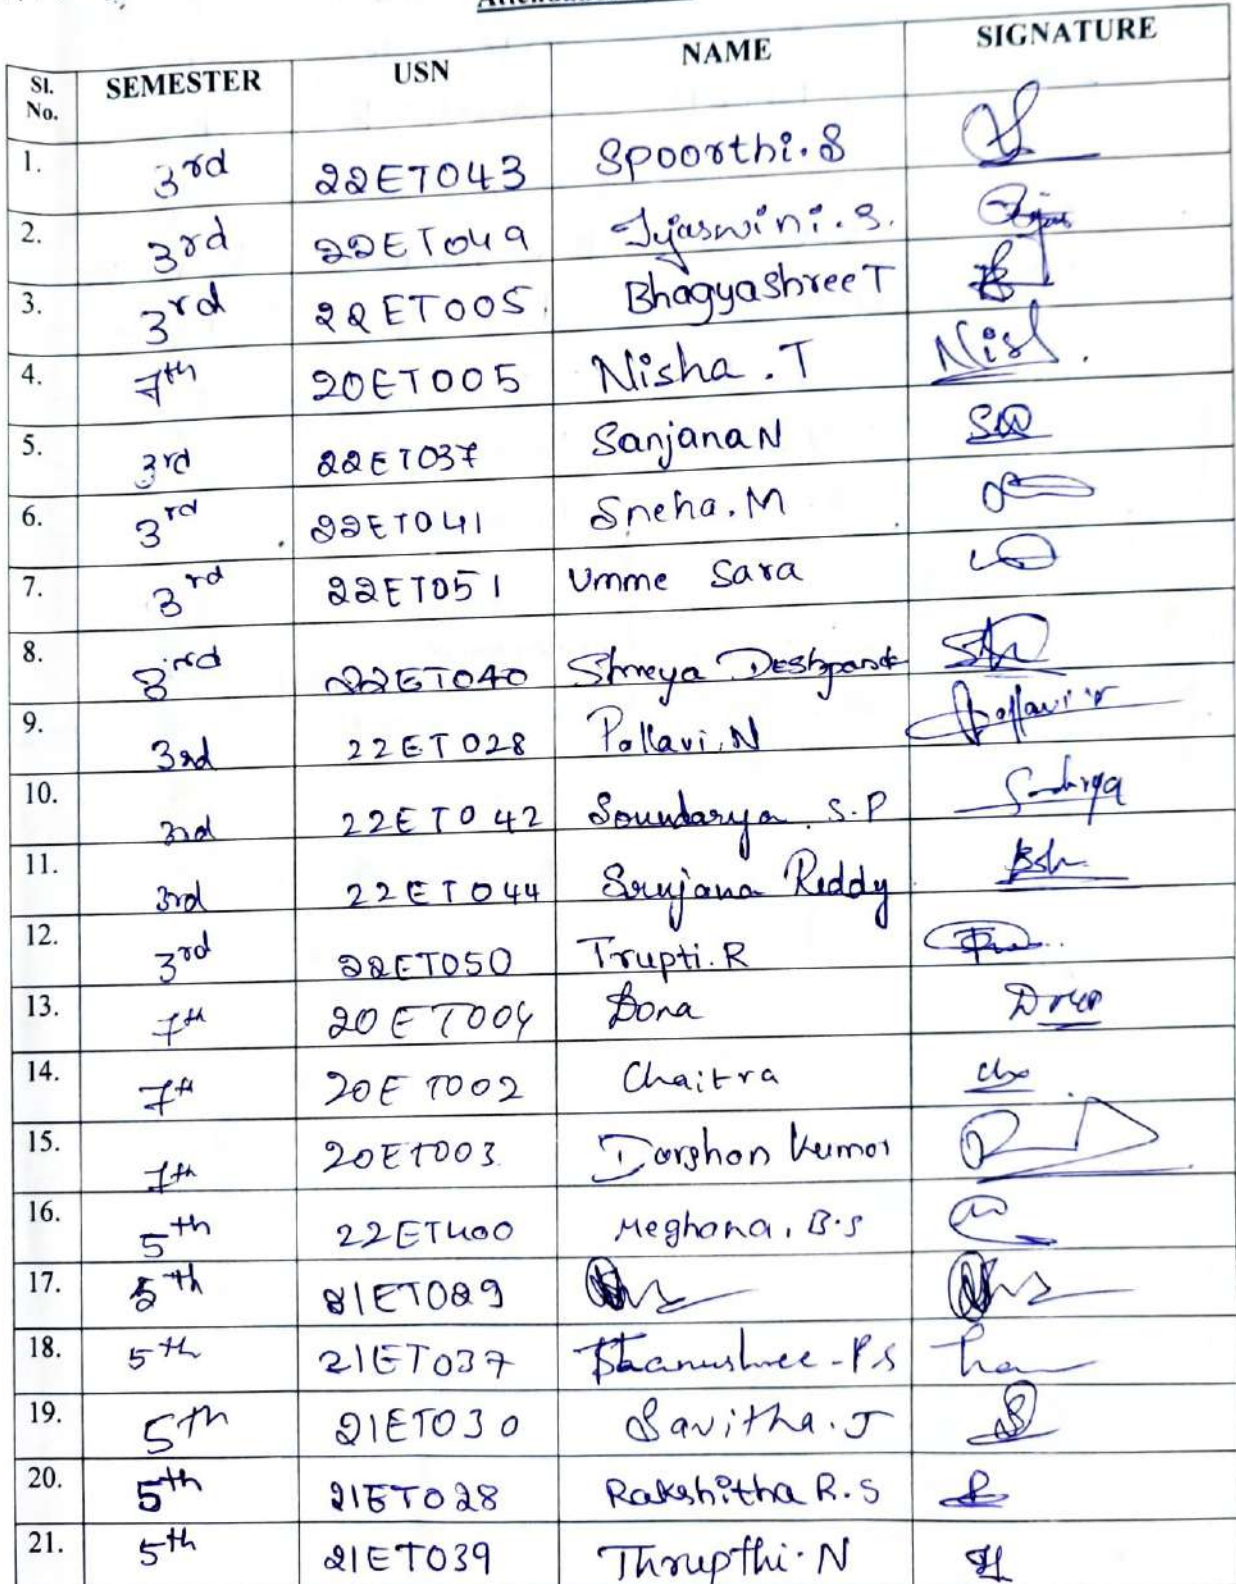 Sl. No. SEMESTER USN NAME SIGNATURE
1. 3rd 22ET043 Spoorthi.S
2. 3rd 22ET049 Tejaswini.S.
3. 3rd 22ET005. Bhagyashree T
4. 7th 20ET005 Nisha.T Nish.
5. 3rd 22ET037 Sanjana N
6. 3rd 22ET041 Sneha.M
7. 3rd 22ET051 Umme Sara
8. 3rd 22ET040 Shreya Deshpande
9. 3rd 22ET028 Pallavi.N Pallavi N
10. 3rd 22ET042 Soundarya S.P
11. 3rd 22ET044 Srujana Reddy
12. 3rd 22ET050 Trupti.R
13. 7th 20ET004 Dona
14. 7th 20ET002 Chaitra
15. 7th 20ET003 Darshan Kumar
16. 5th 22ET400 Meghana.B.S
17. 5th 21ET029
18. 5th 21ET037 Thanushree-P.S
19. 5th 21ET030 Savitha.J
20. 5th 21ET028 Rakshitha R.S
21. 5th 21ET039 Thrupthi.N